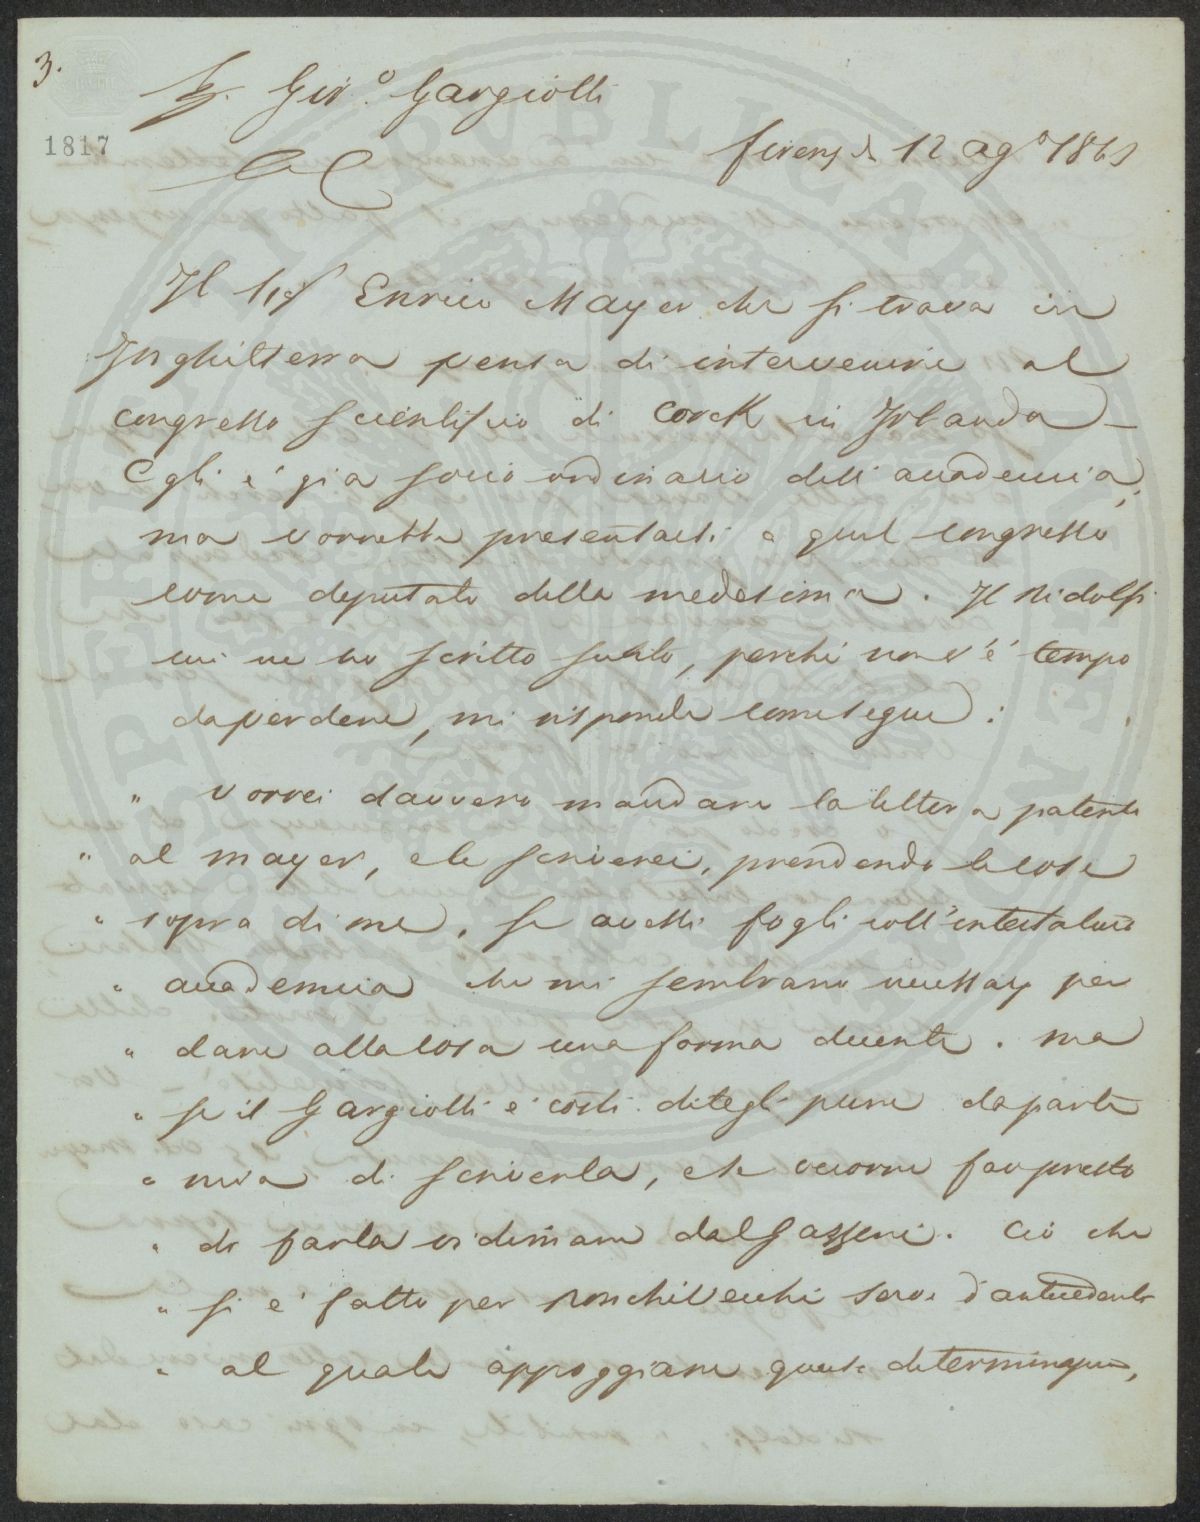 3.
Sr. Gir.º Gargiolli
1817
Firenze 12 agº
Il Sigr Enrico Mayer che si trova in
Inghilterra pensa di intervenire al
congresso scientifico di Corck in Irlanda –
Egli è già socio ordinario dell'accademia,
ma vorrebbe presentarsi a quel congresso
come deputato della medesima. Il Ridolfi
cui ne ho scritto subito, perchè non v'è tempo
da perdere, mi risponde come segue:
" Vorrei davvero mandare la lettera patente
" al Mayer, e la scriverei, prendendo la cosa
" sopra di me, se avessi fogli coll'intestatura
" accademica che mi sembrano necessarj per
" dare alla cosa una forma decente. Ma
" se il Gargiolli è costì ditegli pure da parte
" mia di scriverla, che occorre far presto
" di farla vidimare dal Gazzeri. Ciò che
" si è fatto per Ronchivecchi serva d'antecedente
" al quale appoggiare questa determinazione,